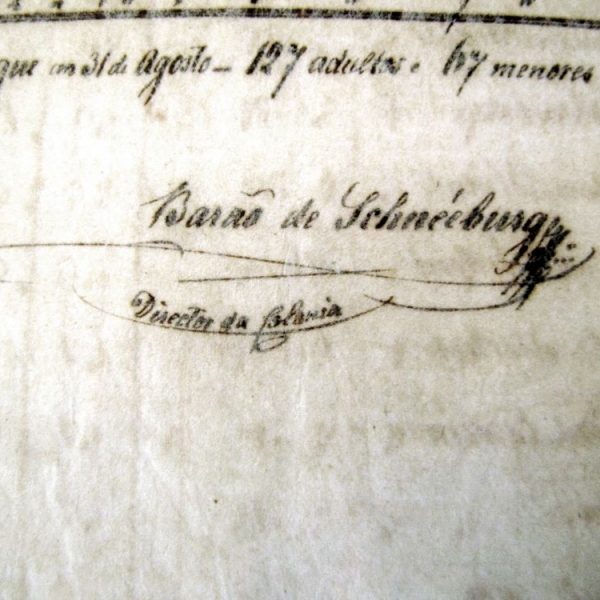 que em 31 de Agosto — 127 adultos e 67 menores
Barão de Schnéeburg
Director da Colonia